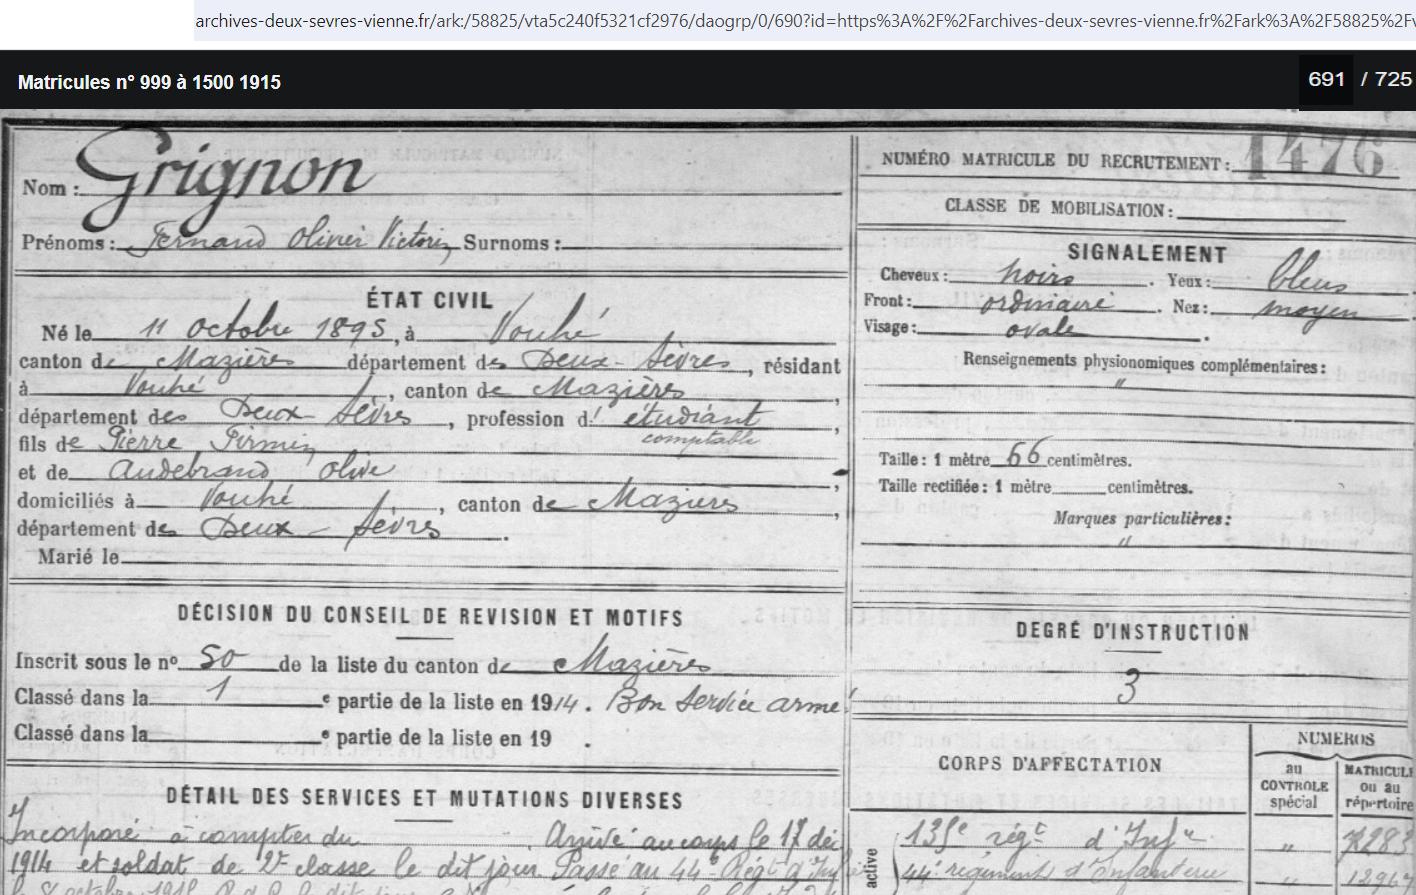 archives-deux-sevres-vienne.fr/ark:/58825/vta5c240f5321cf2976/daogrp/0/690?id=https%3A%2F%2Farchives-deux-sevres-vienne.fr%2Fark%3A%2F58825%2Fv
Matricules n° 999 à 1500 1915
691 / 725
Nom : Grignon
Prénoms : Fernand Olivier Victorin Surnoms :
ÉTAT CIVIL
Né le 11 octobre 1895, à Vouhé
canton de Mazières département des Deux-Sèvres, résidant
à Vouhé, canton de Mazières,
département des Deux Sèvres, profession d' étudiant,
comptable
fils de Pierre Firmin
et de Audebrand Olive,
domiciliés à Vouhé, canton de Mazières,
département des Deux-Sèvres.
Marié le
DÉCISION DU CONSEIL DE REVISION ET MOTIFS
Inscrit sous le n° 50 de la liste du canton de Mazières
Classé dans la 1 e partie de la liste en 1914. Bon Service armé
Classé dans la e partie de la liste en 19 .
DÉTAIL DES SERVICES ET MUTATIONS DIVERSES
Incorporé à compter du Arrivé au corps le 17 déc
1914 et soldat de 2e classe le dit jour. Passé au 44e Régt d'Inf
octobre
NUMÉRO MATRICULE DU RECRUTEMENT : 1476
CLASSE DE MOBILISATION :
SIGNALEMENT
Cheveux : noirs . Yeux : bleus
Front : ordinaire . Nez : moyen
Visage : ovale .
Renseignements physionomiques complémentaires :
"
Taille : 1 mètre 66 centimètres.
Taille rectifiée : 1 mètre centimètres.
Marques particulières :
"
DEGRÉ D'INSTRUCTION
3
CORPS D'AFFECTATION
NUMEROS
au
CONTROLE
spécial
MATRICULE
ou au
répertoire
active
135e régt d'Infie
" 7283
44e régiment d'Infanterie
" 12967